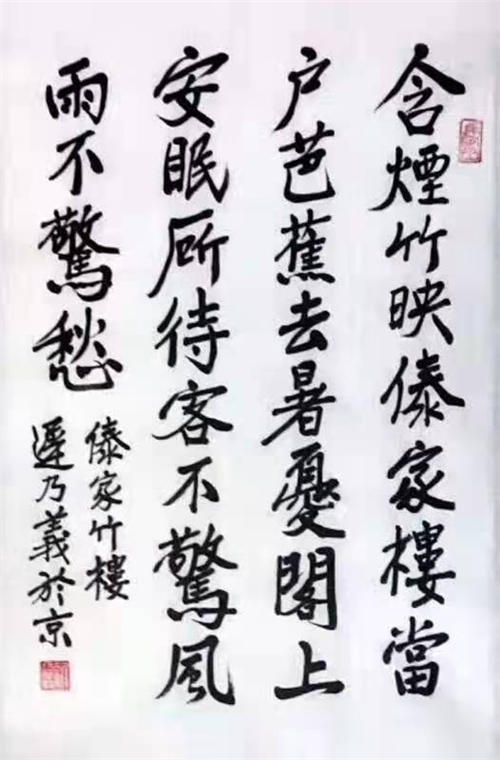 含煙竹映傣家樓當
户芭蕉去暑憂閣上
安眠厛待客不驚風
雨不驚愁
傣家竹樓
遲乃義於京